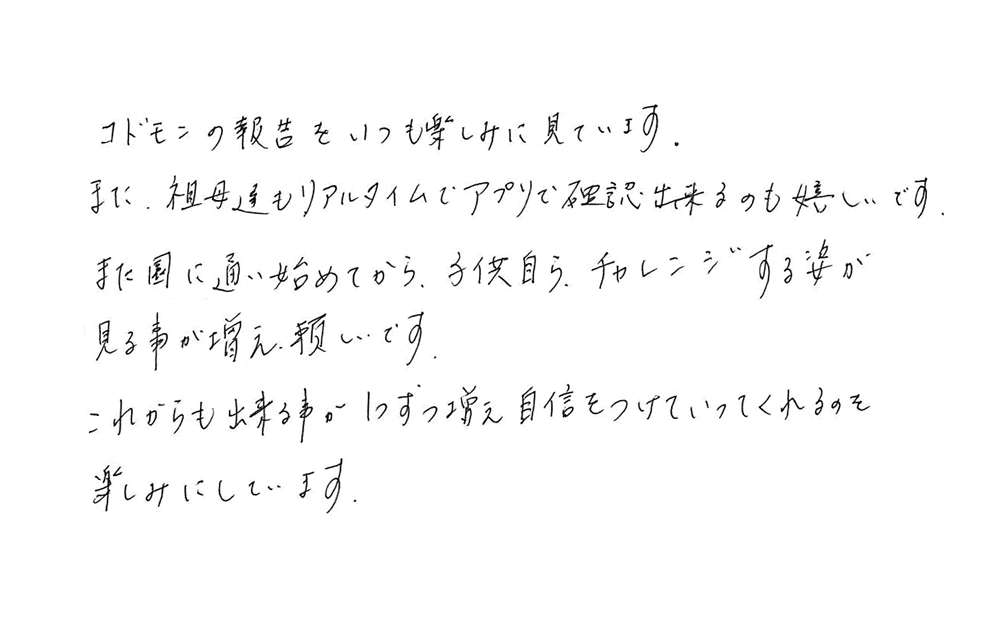 コドモンの報告をいつも楽しみに見ています.
また.祖母達もリアルタイムでアプリで確認出来るのも嬉しいです.
また園に通い始めてから、子供自ら、チャレンジする姿が
見る事が増え、頼しいです.
これからも出来る事が1つずつ増え自信をつけていってくれるのを
楽しみにしています.